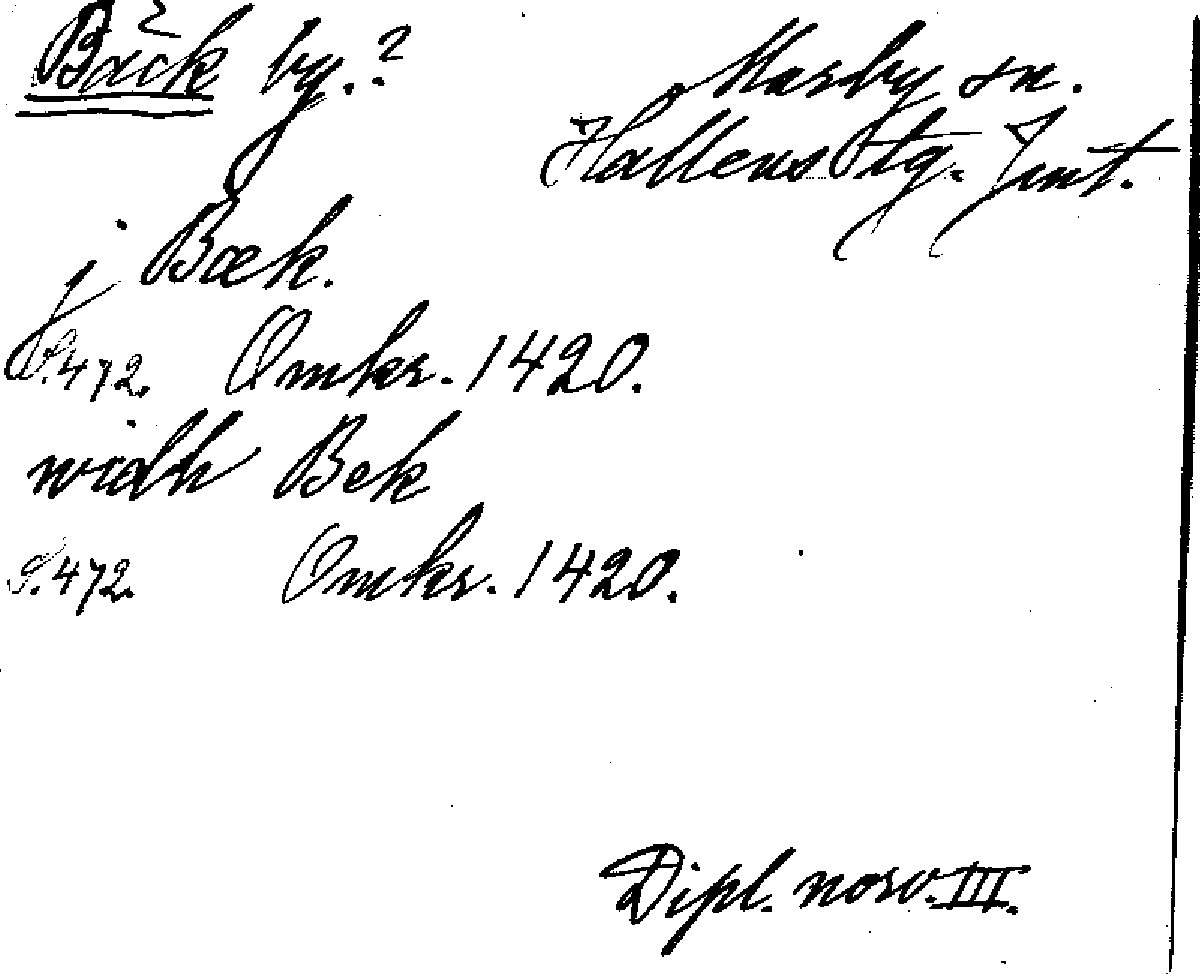 Bäck by.? Marby sn.
Hallens tg. Jmt.
j Bæk.
S. 472. Omkr. 1420.
widh Bek
S. 472. Omkr. 1420.
Dipl. norv. III.